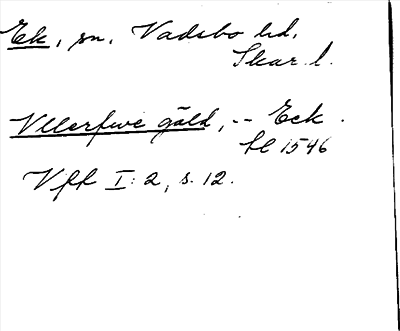 Ek, sn, Vadsbo hd.
Skar. l.
Vllerfwe gäld, -- Eck.
fl 1546
Vff I: 2, s. 12.